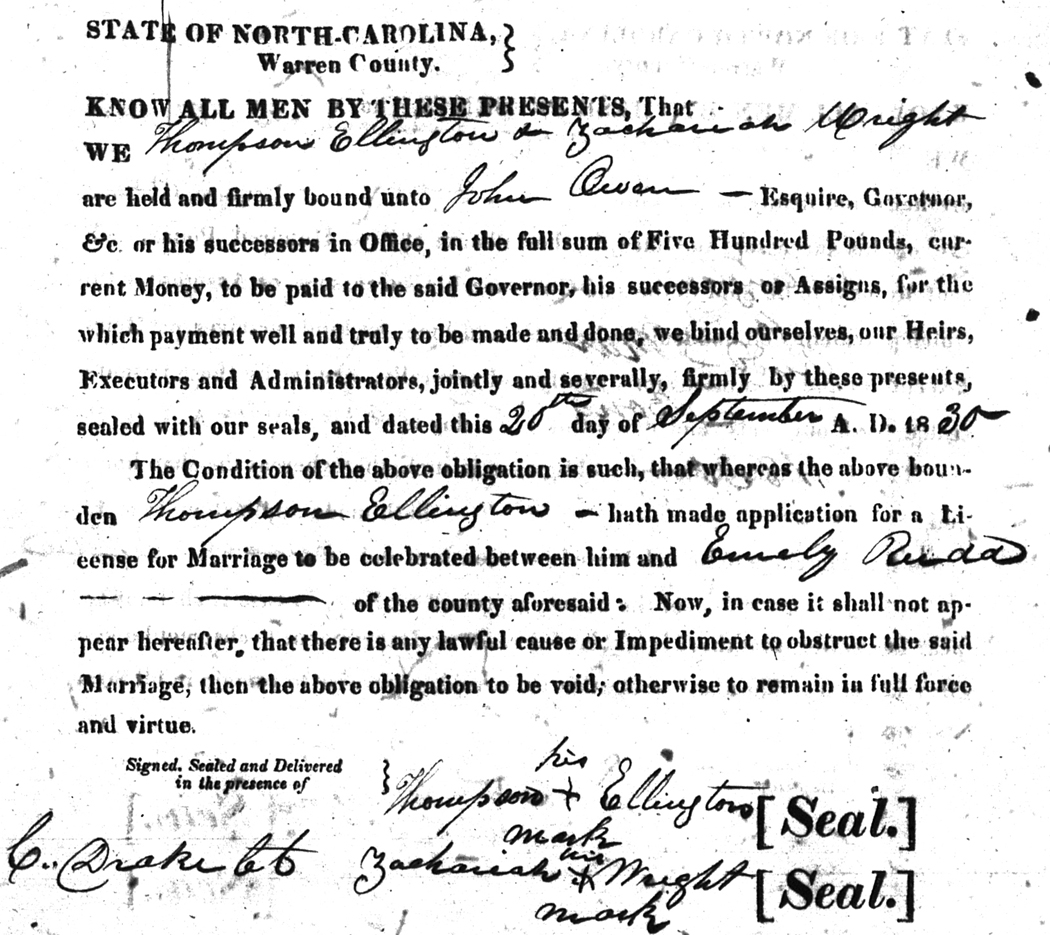 STATE OF NORTH-CAROLINA, }
Warren County.
KNOW ALL MEN BY THESE PRESENTS, That
WE Thompson Ellington & Zachariah Wright
are held and firmly bound unto John Owen — Esquire, Governor,
&c. or his successors in Office, in the full sum of Five Hundred Pounds, cur-
rent Money, to be paid to the said Governor, his successors or Assigns, for the
which payment well and truly to be made and done, we bind ourselves, our Heirs,
Executors and Administrators, jointly and severally, firmly by these presents,
sealed with our seals, and dated this 20th day of September A. D. 1830
The Condition of the above obligation is such, that whereas the above boun-
den Thompson Ellington — hath made application for a Li-
cense for Marriage to be celebrated between him and Emely Rudd
— — — of the county aforesaid: Now, in case it shall not ap-
pear hereafter, that there is any lawful cause or Impediment to obstruct the said
Marriage, then the above obligation to be void; otherwise to remain in full force
and virtue.
Signed, Sealed and Delivered
in the presence of }
his
Thompson + Ellington [Seal.]
mark
C. Drake
his
Zachariah + Wright [Seal.]
mark